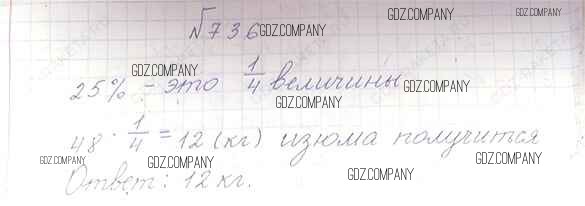 №736 GDZ.COMPANY
GDZ.COMPANY
GDZ.COMPANY
25% - это 1/4 величины GDZ.COMPANY
GDZ.COMPANY
48 · 1/4 = 12 (кг) изюма получиться
GDZ.COMPANY GDZ.COMPANY GDZ.COMPANY
Ответ: 12 кг. GDZ.COMPANY